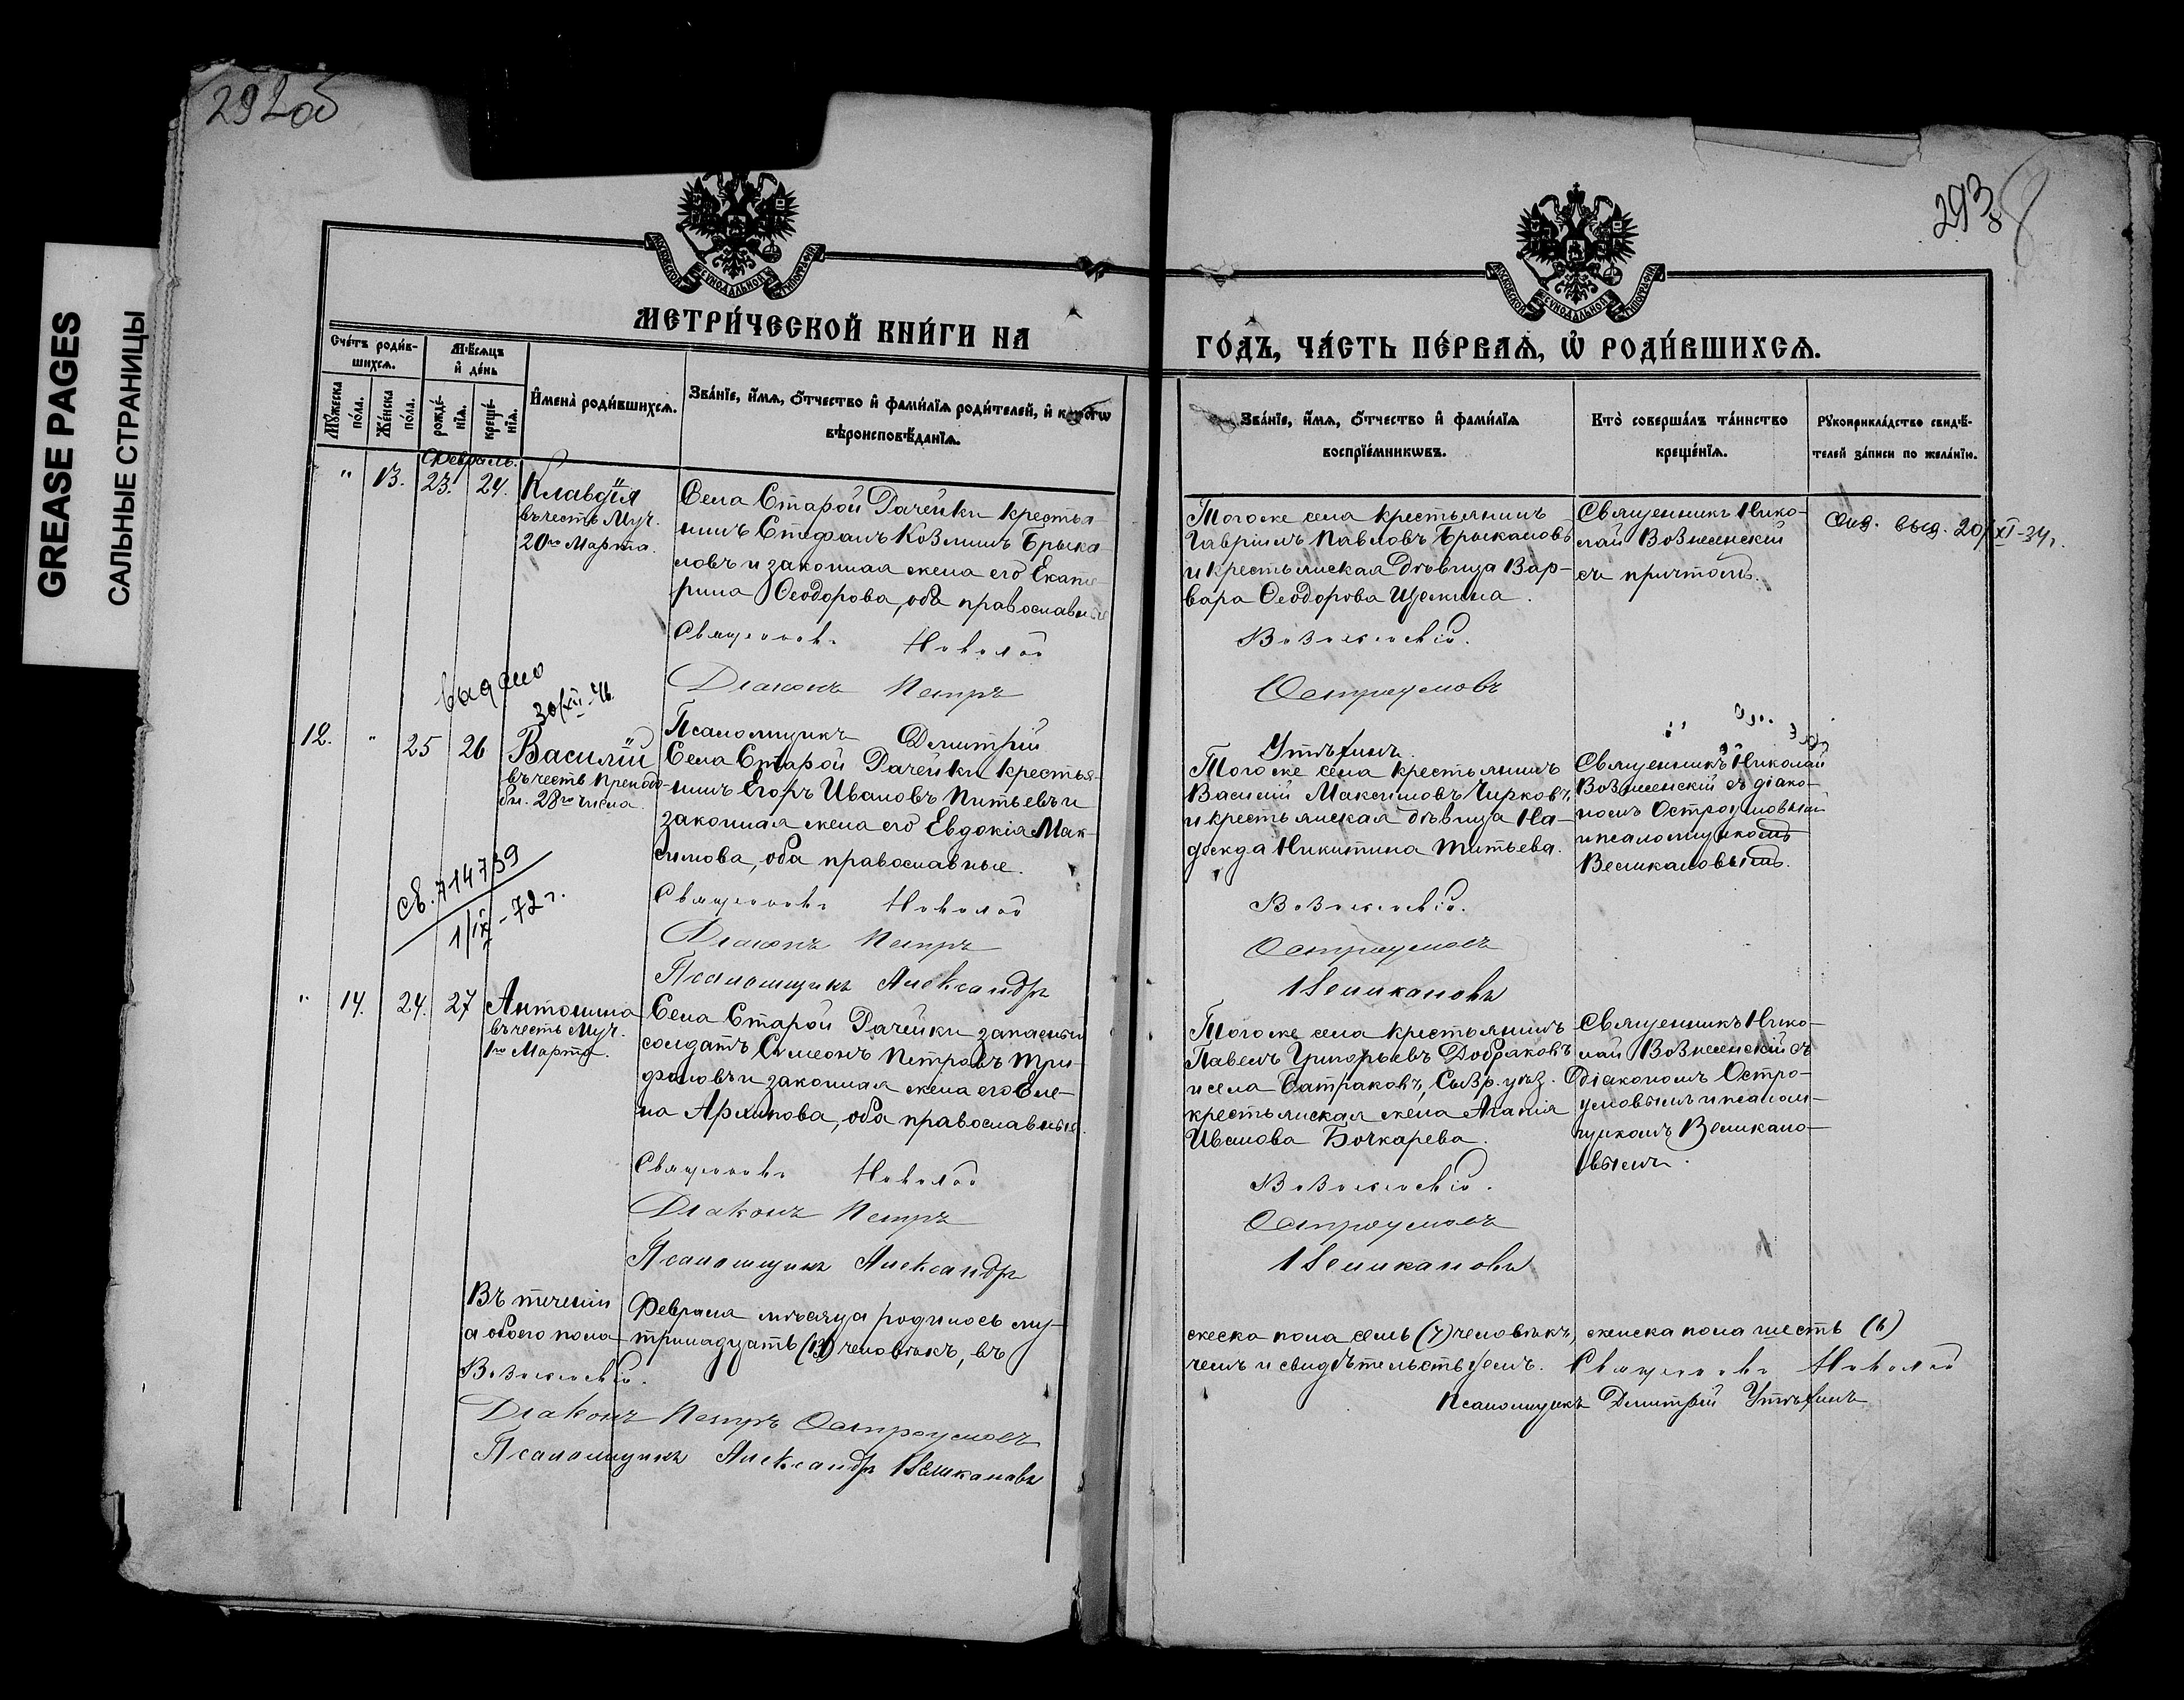 292об
293
8
GREASE PAGES
САЛЬНЫЕ СТРАНИЦЫ
МОСКОВСКОЙ СѴНОДАЛЬНОЙ ТИПОГРАФІИ
МОСКОВСКОЙ СѴНОДАЛЬНОЙ ТИПОГРАФІИ
МЕТРИ́ЧЕСКОЙ КНИ́ГИ НА
ГО́ДЪ, ЧА́СТЬ ПЕ́РВАѦ, Ѡ҆ РОДИ́ВШИХСѦ.
Сче́тъ роди́в-
шихсѧ.
Мѣ́сѧцъ
и҆ де́нь
Мꙋ́жеска
по́ла.
Же́нска
по́ла.
рожде́-
нїѧ.
креще́-
нїѧ.
И҆мена̀ роди́вшихсѧ.
Зва́нїе, и҆́мѧ, ѻ҆́тчество и҆ фами́лїѧ роди́телей, и҆ како́гѡ
вѣроисповѣ́данїѧ.
Зва́нїе, и҆́мѧ, ѻ҆́тчество и҆ фами́лїѧ
воспрїе́мникѡвъ.
Кто̀ соверша́лъ та́инство
креще́нїѧ.
Рꙋкоприкла́дство свидѣ́-
телей за́писи по жела́нїю.
Февраль.
" 13. 23. 24. Клавдія
въ честь Муч.
20го Марта.
Села Старой Рачейки крестья-
нинъ Стефанъ Козминъ Брыка-
ловъ и законная жена его Екате-
рина Ѳеодорова, оба православные
Священникъ Николай
Діаконъ Петръ
Псаломщикъ Димитрій
Тогоже села крестьянинъ
Гавріилъ Павловъ Брыкаловъ
и крестьянская дѣвица Вар-
вара Ѳеодорова Щелкина.
Вознесенскій.
Остроумовъ
Утѣхинъ.
Священникъ Нико-
лай Вознесенскій
съ причтомъ.
выд. 20/XI-34г.
выдано
30/XII-46
12. " 25 26 Василій
въ честь Преподо-
бн. 28го числа.
Села Старой Рачейки крестья-
нинъ Егоръ Ивановъ Питьевъ и
законная жена его Евдокія Мак-
симова, оба православные.
Священникъ Николай
Діаконъ Петръ
Псаломщикъ Александръ
Тогоже села крестьянинъ
Василій Максимовъ Чирковъ
и крестьянская дѣвица На-
дежда Никитина Питьева.
Вознесенскій.
Остроумовъ
Великановъ
Священникъ Николай
Вознесенскій съ діако-
номъ Остроумовымъ
и псаломщикомъ
Великановымъ.
св. 714739
1/IX-72г.
" 14. 24. 27 Антонина
въ честь Муч.
1го Марта.
Села Старой Рачейки запасный
солдатъ Симеонъ Петровъ Три-
фоновъ и законная жена его Еле-
на Архипова, оба православные.
Священникъ Николай
Діаконъ Петръ
Псаломщикъ Александръ
Тогоже села крестьянинъ
Павелъ Григорьевъ Добряковъ
и села Батраковъ, Сызр. уѣз.
крестьянская жена Агапія
Иванова Бочкарева.
Вознесенскій.
Остроумовъ
Великановъ
Священникъ Нико-
лай Вознесенскій съ
Діакономъ Остро-
умовымъ и псалом-
щикомъ Великано-
вымъ.
Въ теченіи Февраля мѣсяца родилось му-
жеска пола семь (7) человѣкъ, женска пола шесть (6)
а обоего пола тринадцать (13) человѣкъ, въ
чемъ и свидѣтельствуемъ. Священникъ Николай
Вознесенскій.
Псаломщикъ Димитрій Утѣхинъ
Діаконъ Петръ Остроумовъ
Псаломщикъ Александръ Великановъ